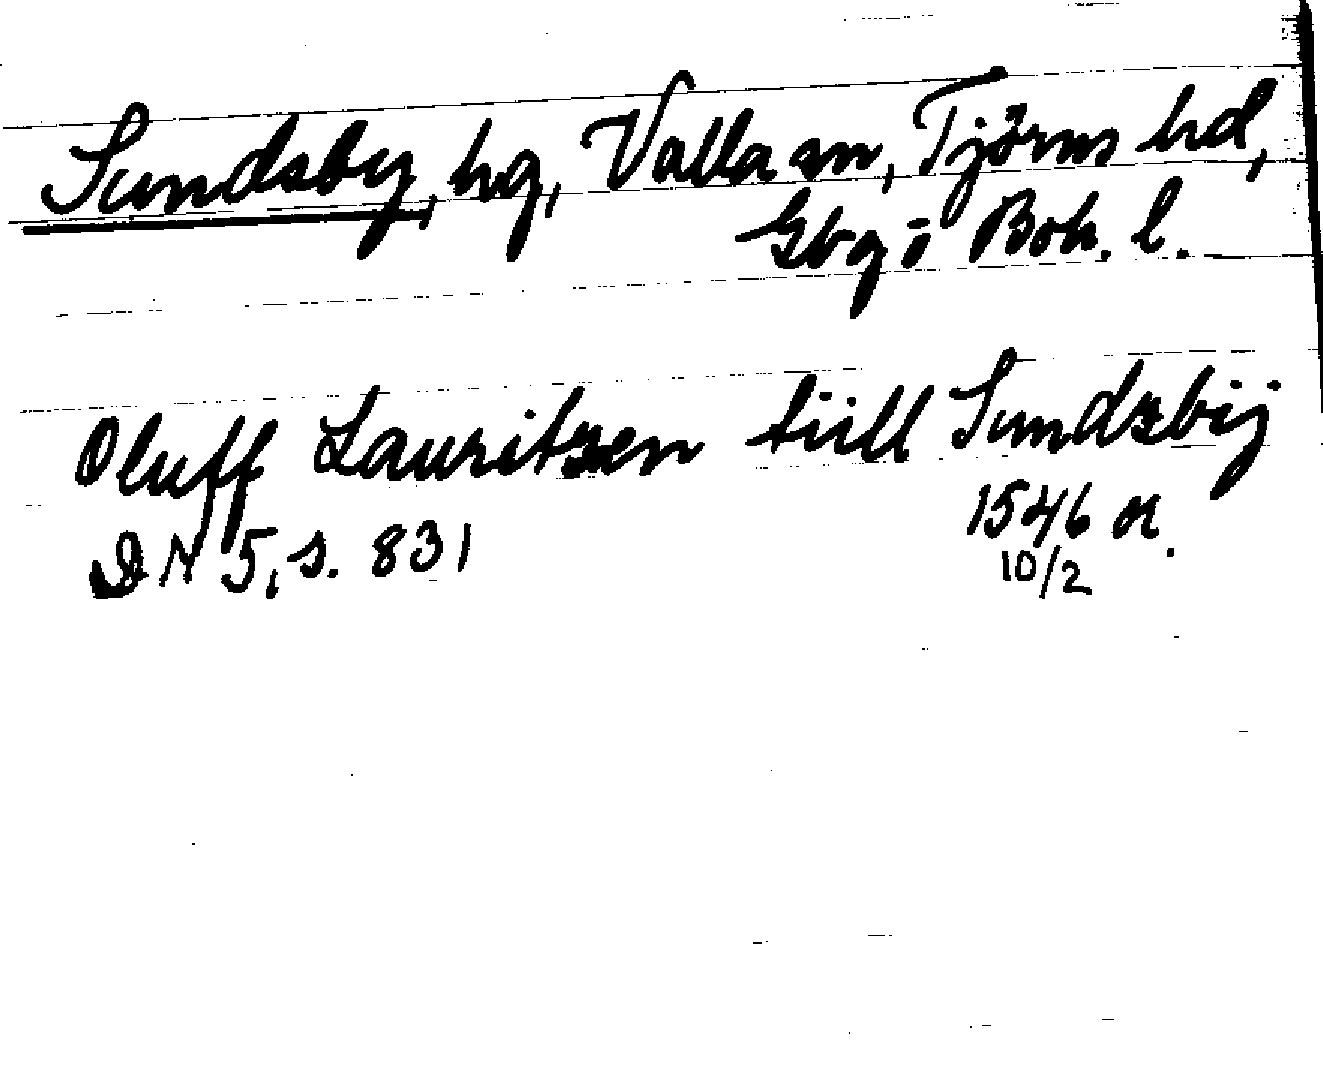 Sundsby, hg, Valla sn, Tjörns hd,
Gbg o Boh. l.
Oluff Lauritzen tiill Sundzbÿ
1546 or.
DN 5, s. 831
10/2